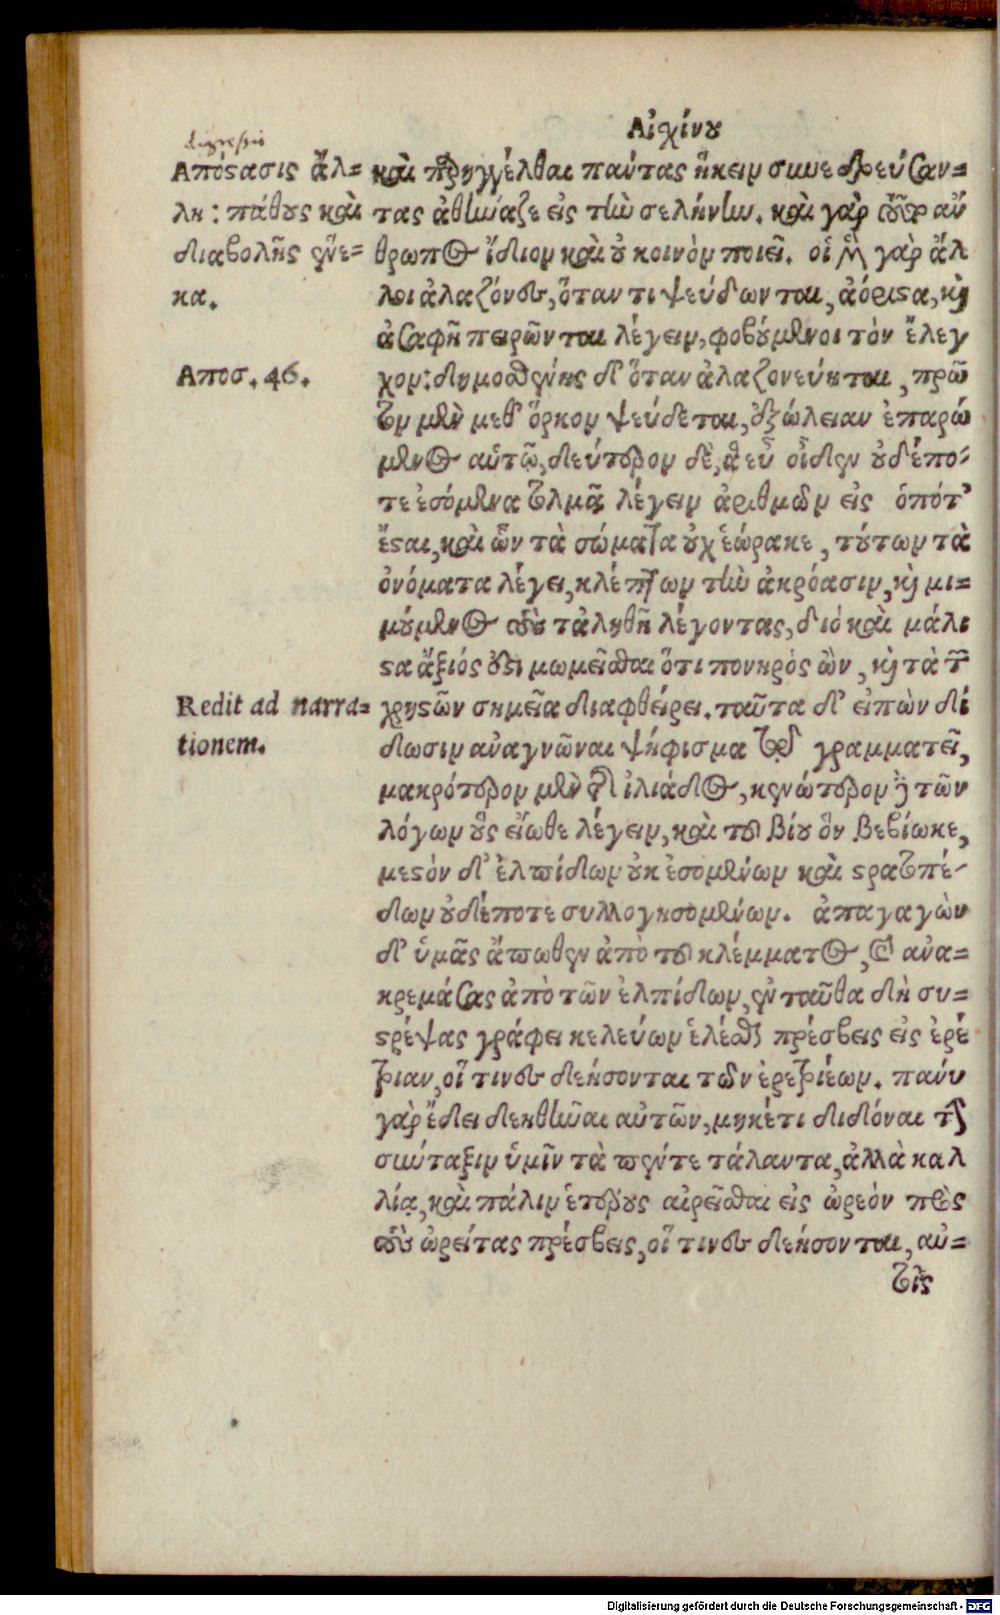 Αἰχίνου
digressio
Απόστασις ἄλ=
λη : πάθους καὶ
διαβολῆς ἕνε=
κα.
Αποσ. 46.
Redit ad narra=
tionem.
καὶ παρηγγέλθαι πάντας ἥκειν συνεδρεύσαν=
τας ἀθήναζε εἰς τὴν σελήνην. καὶ γὰρ τοῦτο ἅν
θρωπος ἴδιον καὶ οὐ κοινὸν ποιεῖ. οἱ μὲν γὰρ ἄλ
λοι ἀλαζόνες, ὅταν τι ψεύδωνται, ἀόριστα, καὶ
ἀσαφῆ πειρῶνται λέγειν, φοβούμενοι τὸν ἔλεγ
χον: δημοσθένης δ' ὅταν ἀλαζονεύηται, πρῶ
τον μὲν μεθ' ὅρκου ψεύδεται, ἐξώλειαν ἐπαρώ
μενος αὑτῷ, δεύτερον δὲ, ἃ εὖ οἶδεν οὐδέπο-
τε ἐσόμενα τολμᾷ λέγειν ἀριθμῶν εἰς ὁπότ'
ἔσται, καὶ ὧν τὰ σώματα οὐχ ἑώρακε, τούτων τὰ
ὀνόματα λέγει, κλέπτων τὴν ἀκρόασιν, καὶ μι=
μούμενος τοὺς τἀληθῆ λέγοντας, διὸ καὶ μάλι
στα ἄξιός ἐστι μισεῖσθαι ὅτι πονηρὸς ὢν, καὶ τὰ τῶν
χρηστῶν σημεῖα διαφθείρει. ταῦτα δ' εἰπὼν δί
δωσιν ἀναγνῶναι ψήφισμα τῷ γραμματεῖ,
μακρότερον μὲν τῆς ἰλιάδος, κενώτερον δὲ τῶν
λόγων οὓς εἴωθε λέγειν, καὶ τοῦ βίου ὃν βεβίωκε,
μεστὸν δ' ἐλπίδων οὐκ ἐσομένων καὶ στρατοπέ-
δων οὐδέποτε συλλογησομένων. ἀπαγαγὼν
δ' ὑμᾶς ἄπωθεν ἀπὸ τοῦ κλέμματος, καὶ ἀνα=
κρεμάσας ἀπὸ τῶν ἐλπίδων, ἐνταῦθα δὴ συ=
στρέψας γράφει κελεύων ἑλέσθαι πρέσβεις εἰς ἐρέ
τριαν, οἵ τινες δεήσονται τῶν ἐρετριέων. πάνυ
γὰρ ἔδει δεηθῆναι αὐτῶν, μηκέτι διδόναι τὴν
σύνταξιν ὑμῖν τὰ πέντε τάλαντα, ἀλλὰ καλ
λίᾳ, καὶ πάλιν ἑτέρους αἱρεῖσθαι εἰς ὠρεὸν πρὸς
τοὺς ὠρείτας πρέσβεις, οἵ τινες δεήσονται, αὐ=
τοῖς
Digitalisierung gefördert durch die Deutsche Forschungsgemeinschaft - DFG